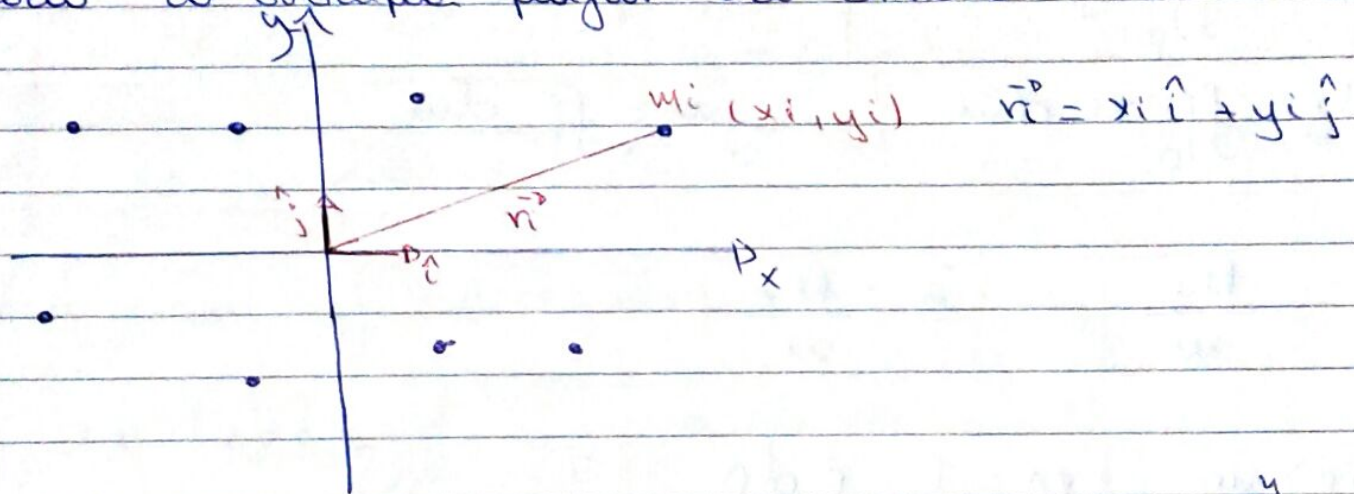 y
mi (xi, yi) r⃗i = xi î + yi ĵ
ĵ
r⃗i
î
x